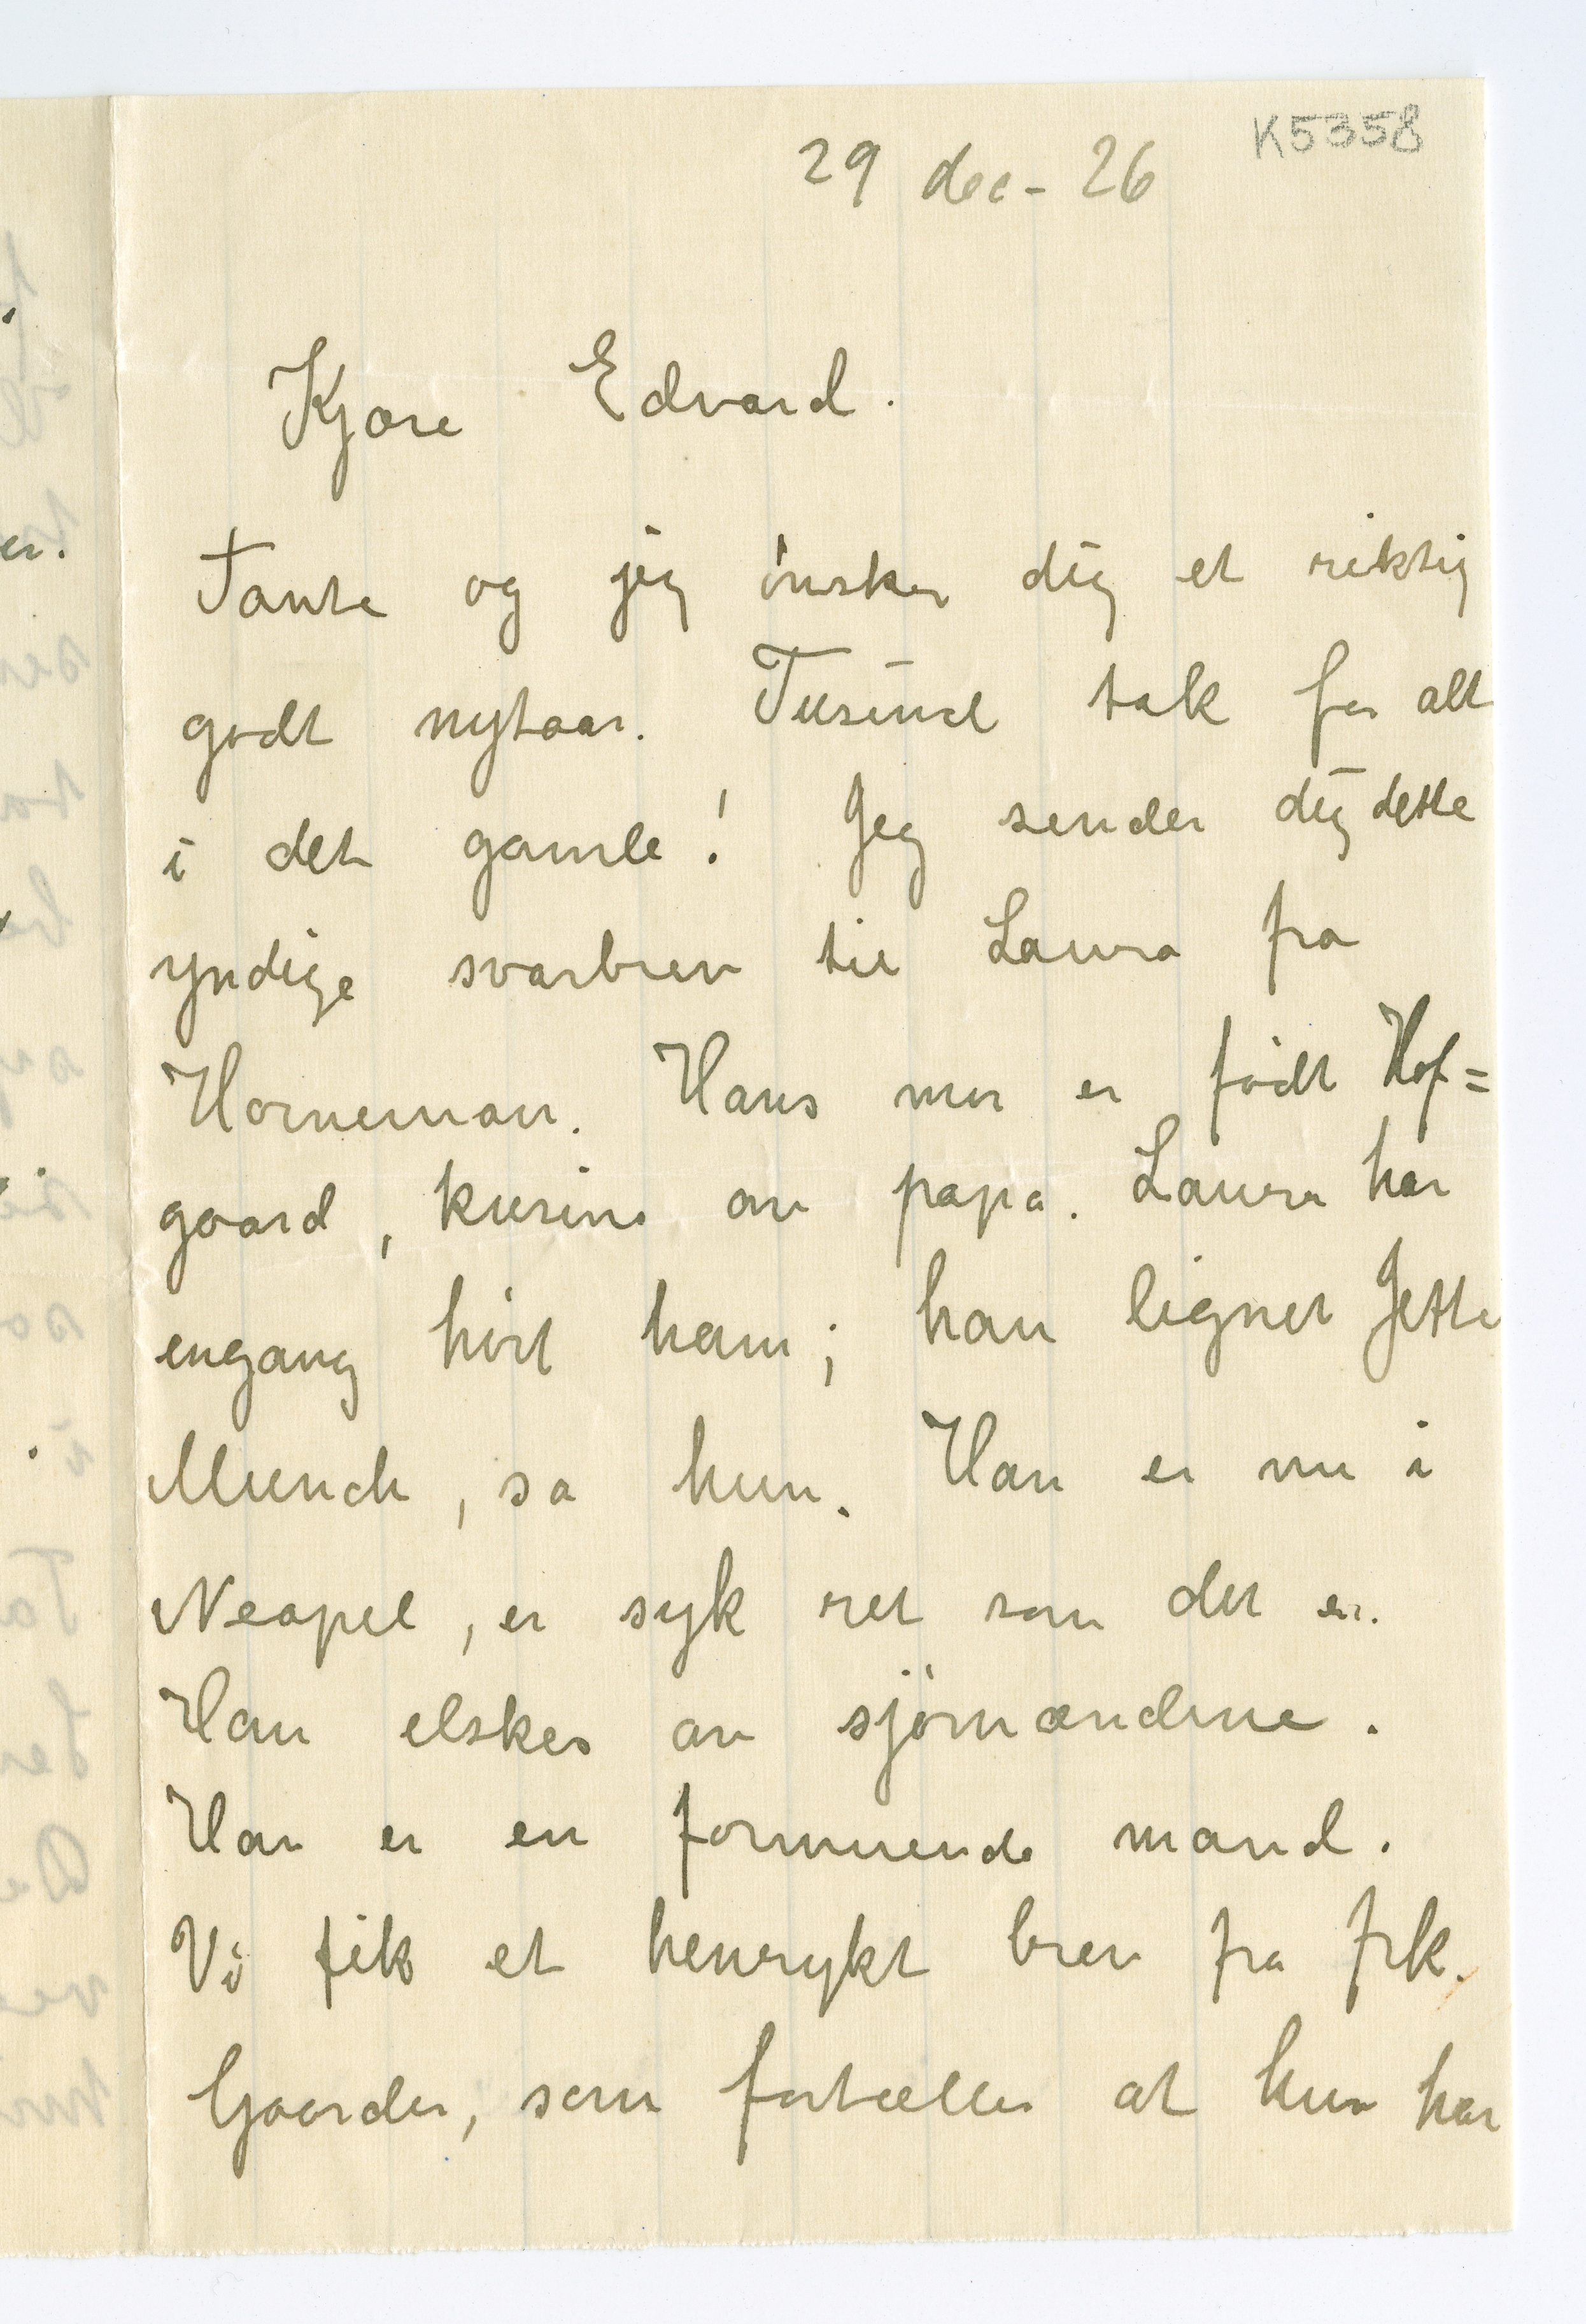 K5358
29 dec - 26
Kjære Edvard.
Tante og jeg ønsker dig et riktig
godt nytaar. Tusind tak for alt
i det gamle! Jeg sender dig dette
yndige svarbrev til Laura fra
Horneman. Hans mor er født Hof=
gaard, kusine av papa. Laura har
engang hørt ham; han ligner Jette
Munch, sa hun. Han er nu i
Neapel, er syk ret som det er.
Han elskes av sjømændene.
Han er en formuende mand.
Vi fik et henrykt brev fra frk.
Gaarder, som fortæller at hun har
er.